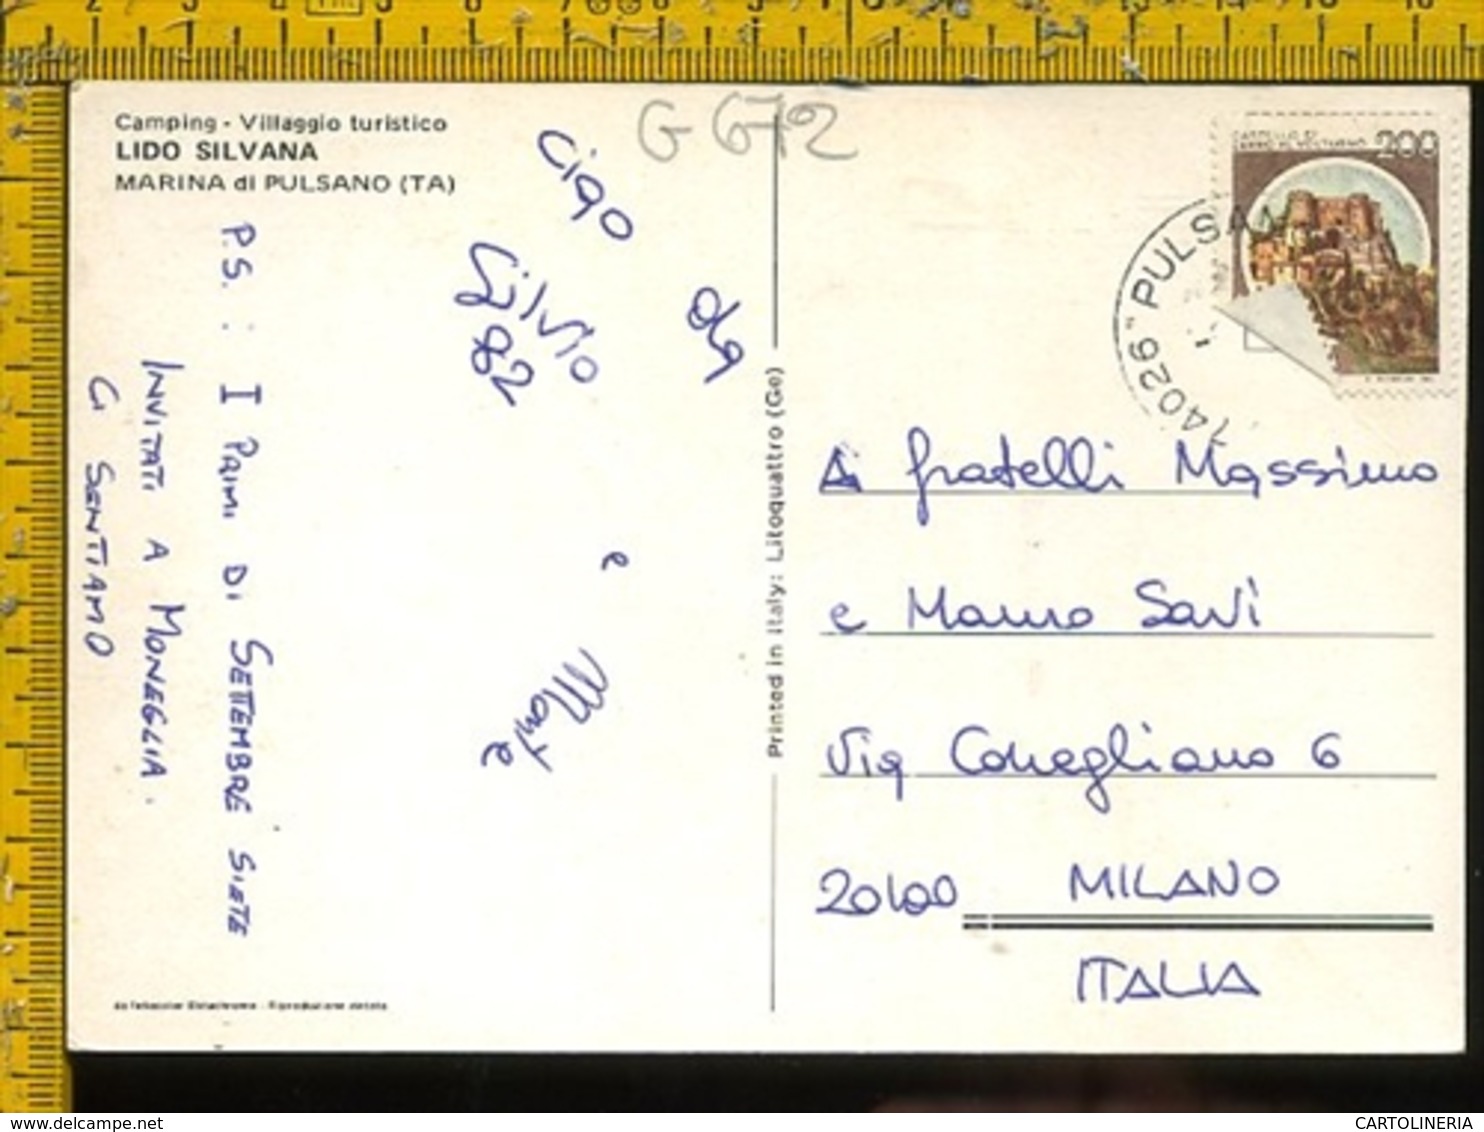 Camping - Villaggio turistico
LIDO SILVANA
MARINA di PULSANO (TA)
G 672
200
74026 PULSAN
ciao
da
Silvio
82
e
Monte
P.S. : I PRIMI DI SETTEMBRE SIETE
INVITATI A MONEGLIA.
CI SENTIAMO
Printed in Italy: Litoquattro (Ge)
Ai fratelli Massimo
e Mauro Savi
Via Conegliano 6
20100 MILANO
ITALIA
Riproduzione vietata
www.delcampe.net
CARTOLINERIA